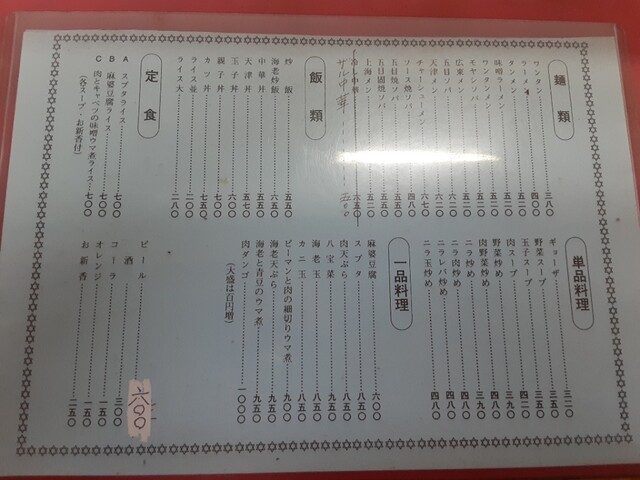 麺類
ワンタン 三八〇
ラーメン 四〇〇
タンメン
味噌ラーメン 五二〇
ワンタンメン 五二〇
モヤシソバ 五二〇
広東メン 五二〇
五目メン
天津メン 六七〇
チャーシューメン
ソース焼ソバ 四八〇
五目焼ソバ 五二〇
五目固焼ソバ
上海メン 五二〇
冷し中華 六五〇
サル中華 五〇〇
飯類
炒飯 五五〇
海老炒飯 六五〇
中華丼 五五〇
天津丼 五七〇
玉子丼 六〇〇
親子丼
カツ丼 七五〇
ライス並 二〇〇
ライス大 二八〇
定食
A スブタライス 七〇〇
B 麻婆豆腐ライス 七〇〇
C 肉とキャベツの味噌ウマ煮ライス 七〇〇
（各スープ・お新香付）
単品料理
ギョーザ 三二〇
野菜スープ 三五〇
玉子スープ 四二〇
肉スープ 三九〇
野菜炒め 四八〇
肉野菜炒め 三九〇
ニラ炒め
ニラ肉炒め 四八〇
ニラレバ炒め 四八〇
ニラ玉炒め 四八〇
一品料理
麻婆豆腐 六〇〇
スブタ 八五〇
肉天ぷら 八五〇
八宝菜 九五〇
海老玉
カニ玉 八五〇
ピーマンと肉の細切りウマ煮 九〇〇
海老天ぷら 九五〇
海老と青豆のウマ煮 九五〇
肉ダンゴ 一〇〇〇
（大盛は百円増）
ビール 六〇〇
酒 三〇〇
コーラ 一五〇
オレンジ 一五〇
お新香 二五〇